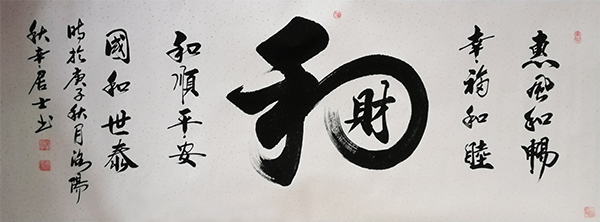 惠風和暢
幸福和睦
和
財
和順平安
國和世泰
時於庚子秋月洛陽
秋幸居士书